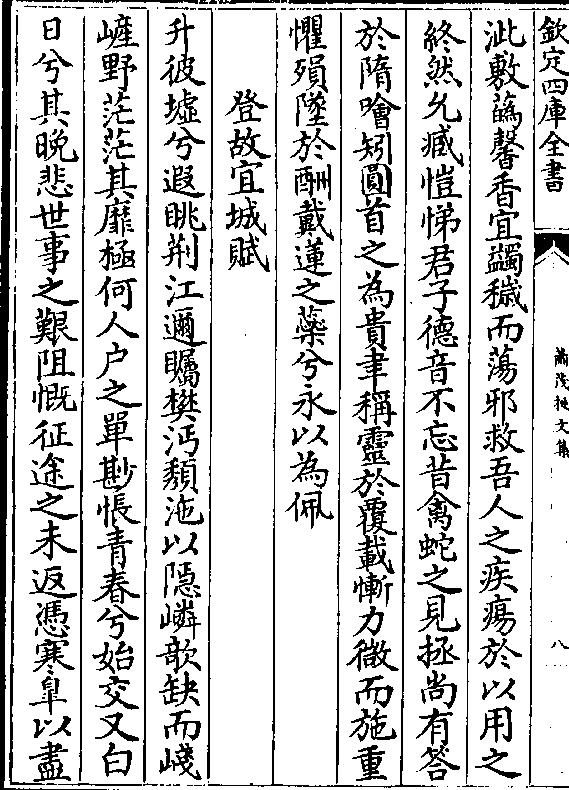 欽定四庫全書
泚敷蘤馨香宜蠲穢而蕩邪救吾人之疾瘍於以用之
終然允臧愷悌君子德音不忘昔禽蛇之見拯尚有答
於隋噲矧圓首之為貴聿稱靈於覆載慚力微而施重
懼殞墜於酬戴蓮之蘂兮永以為佩
登故宜城賦
升彼墟兮遐眺荆江邇矚樊沔頽沲以隠嶙缺而
野茫茫其靡極何人户之單尠悵青春兮始交又白
日兮其晚悲世事之艱阻慨征途之未返憑寒皐以盡
蕭茂挺文集
八